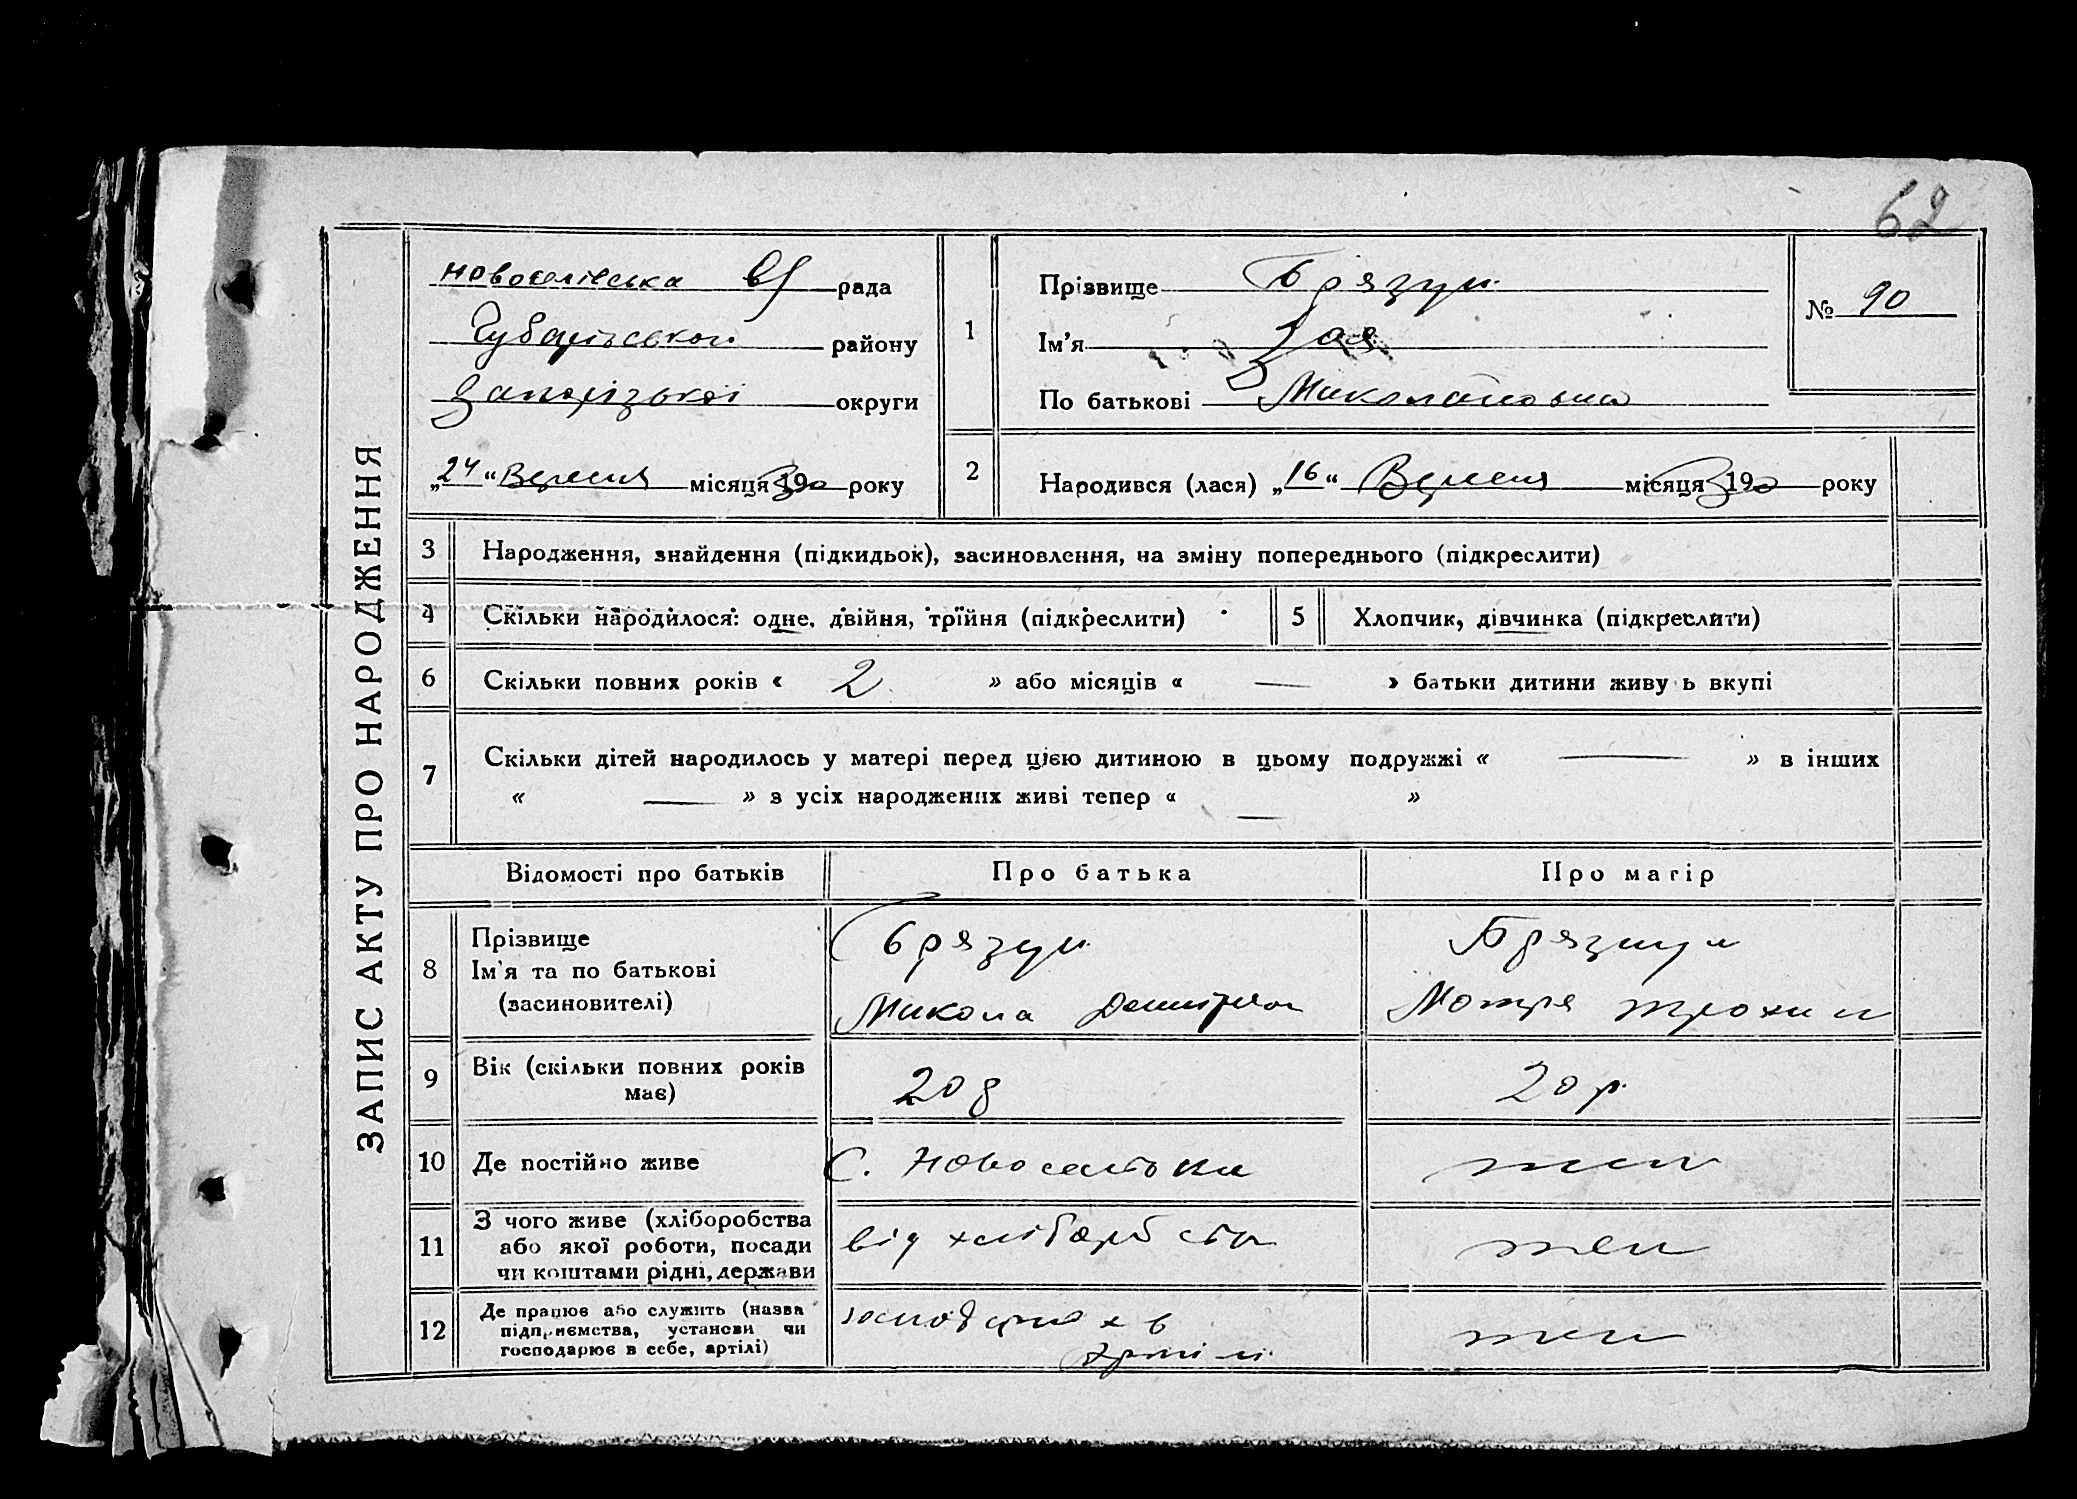 62
ЗАПИС АКТУ ПРО НАРОДЖЕННЯ
новоселівська рада
району
Запорізької округи
„24“ Вересня місяця 1930 року
1
Прізвище Брязун
Ім'я Зоя
По батькові Миколаївна
№ 90
2
Народився (лася) „16“ Вересня місяця 1930 року
3 Народження, знайдення (підкидьок), засиновлення, на зміну попереднього (підкреслити)
4 Скільки народилося: одне, двійня, трійня (підкреслити)
5 Хлопчик, дівчинка (підкреслити)
6 Скільки повних років « 2 » або місяців « — » батьки дитини живу ь вкупі
7 Скільки дітей народилось у матері перед цією дитиною в цьому подружжі « — » в інших
« — » з усіх народжених живі тепер « — »
Відомості про батьків Про батька Про матір
8 Прізвище
Ім'я та по батькові
(засиновителі)
Брязун
Микола
Мотря
9 Вік (скільки повних років
має)
20 р
20 р.
10 Де постійно живе
С. Новоселівка
11 З чого живе (хліборобства
або якої роботи, посади
чи коштами рідні, держави
від
12 Де працює або служить (назва
підприємства, установи чи
господарює в себе, артілі)
в
артілі